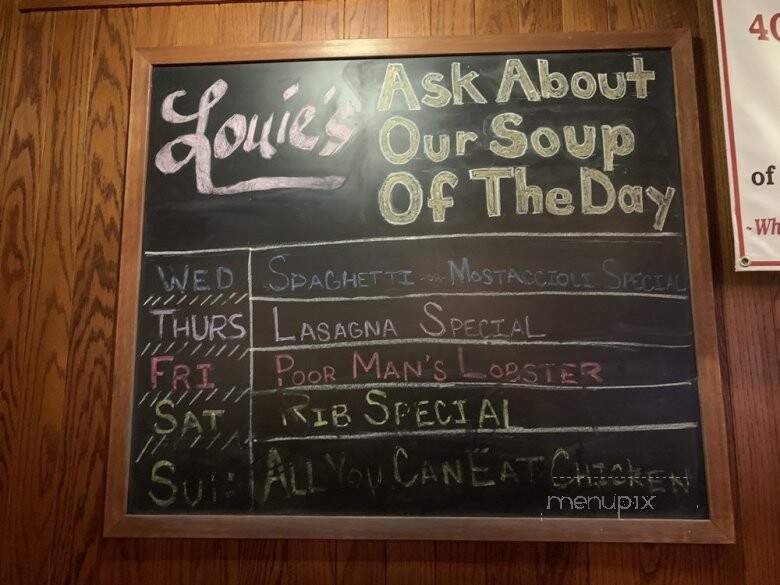 Louie's
Ask About
Our Soup
Of The Day
WED SPAGHETTI or MOSTACCIOLI SPECIAL
THURS LASAGNA SPECIAL
FRI POOR MAN'S LOBSTER
SAT RIB SPECIAL
SUN ALL YOU CAN EAT CHICKEN
menupix
40
of
-Wh